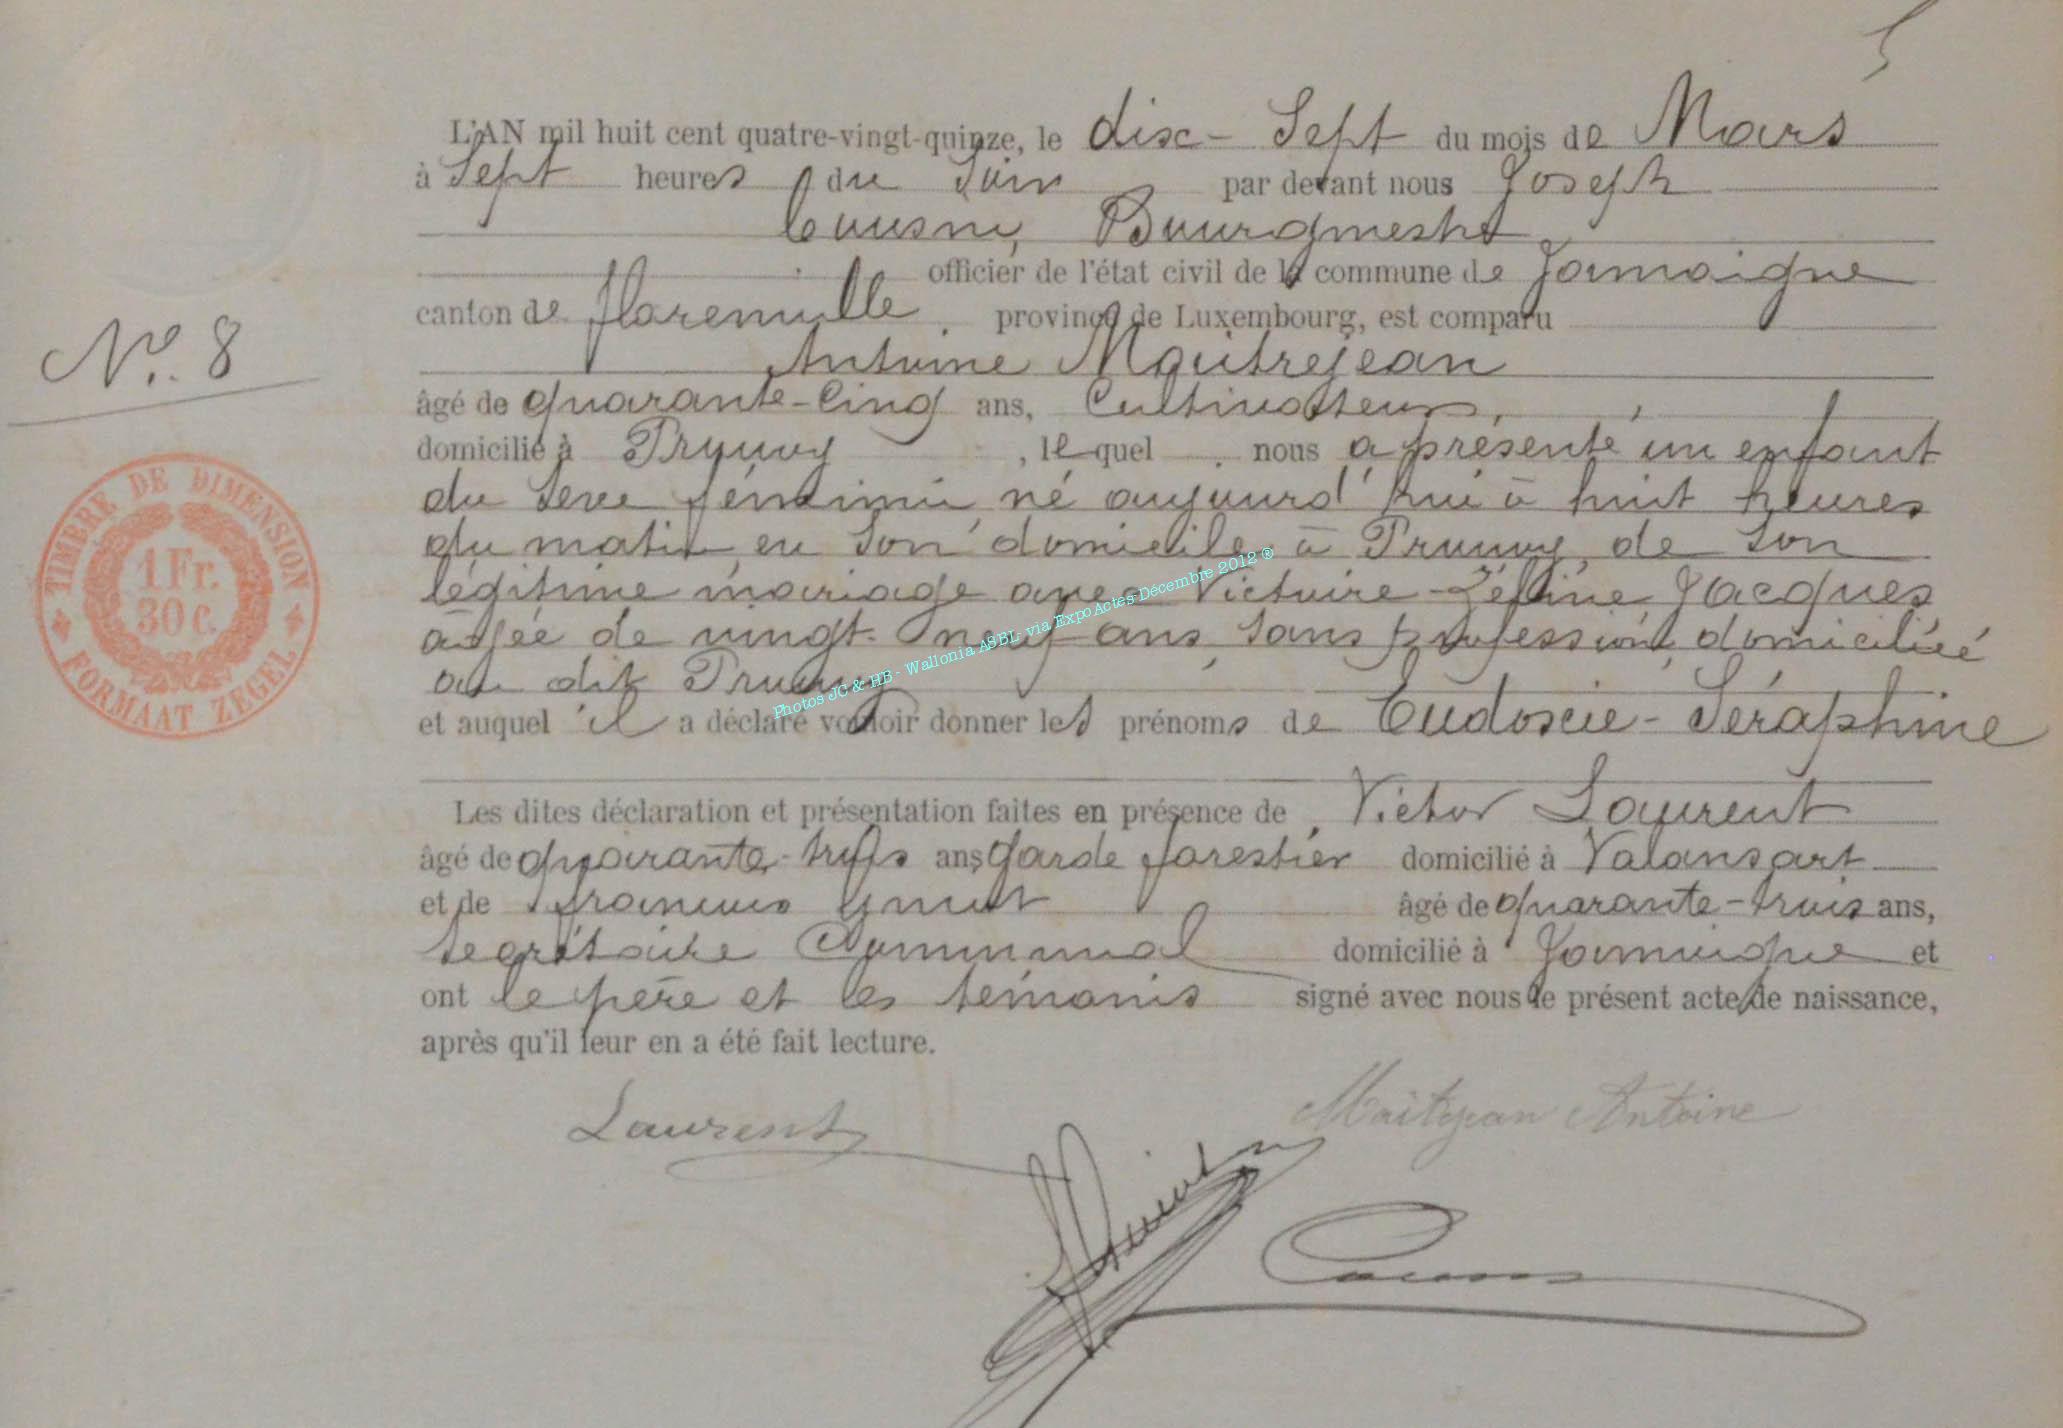 5
L'AN mil huit cent quatre-vingt-quinze, le dix-Sept du mois de Mars
à Sept heures du Soir par devant nous Joseph
Bourgmestre
officier de l'état civil de la commune de Jamoigne
canton de florenville, province de Luxembourg, est comparu
Antoine Maitrejean
âgé de quarante-Cinq ans, Cultivateur,
domicilié à Prouvy, lequel nous a présenté un enfant
du Sexe féminin, né aujourd'hui à huit heures
du matin en Son domicile à Prouvy, de Son
légitime mariage avec Victoire-Zéline Jacques
âgée de vingt-neuf ans, Sans profession, domiciliée
au dit Prouvy
et auquel il a déclaré vouloir donner les prénoms de Eudoxie-Séraphine
Les dites déclaration et présentation faites en présence de Victor Laurent
âgé de quarante-trois ans, Garde forestier domicilié à Valansart
et de françois âgé de quarante-trois ans,
Secrétaire Communal domicilié à Jamoigne et
ont le père et les témoins signé avec nous le présent acte de naissance,
après qu'il leur en a été fait lecture.
Laurent
Maitrejean Antoine
No. 8
TIMBRE DE DIMENSION
1 Fr.
30 c.
FORMAAT ZEGEL
Photos JC & HB - Wallonia ASBL via ExpoActes-Décembre 2012 ®